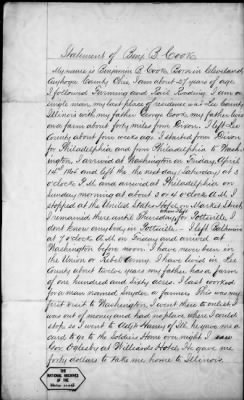 Statement of Benj. B. Cook
My name is Benjamin B Cook Born in Cleveland
Cuyhoga County Ohio. I am about 27 years of age
I followed Farming and Rail Roading. I am a
single man, my last place of residence was Lee County
Illinois with my father George Cook, my father lives
on a farm about forty miles from Dixon. I left Lee
County about four weeks ago. I started from Dixon
for Philadelphia and from Philadelphia to Wash-
ington. I arrived at Washington on Friday, April
14th 1865 and left the next day Saturday at 3
o'clock P.M. and arrived at Philadelphia on
Sunday morning at about 3 or 4 o'clock A.M. I
stopped at the United States Hotel on Market Street
I remained there until Thursday for Pottsville I
when I left
dont know anybody in Pottsville. I left Baltimore
at 7 o'clock A.M. on Friday and arrived at
Washington before noon. I have never been in
the Union or Rebel Army. I have lived in Lee
County about twelve years my father has a farm
of one hundred and sixty acres. I last worked
for a man named Snyder a farmer. This was my
first visit to Washington. I went there to enlist I
was out of money and had no place where I could
stop so I went to Adjt Haney of Ill. he gave me a
card to go to the Soldiers Home over night. I saw
Gov Oglesby at Willards Hotel. He gave me
forty dollars to take me home to Illinois.
THE NATIONAL ARCHIVES
OF THE
UNITED STATES